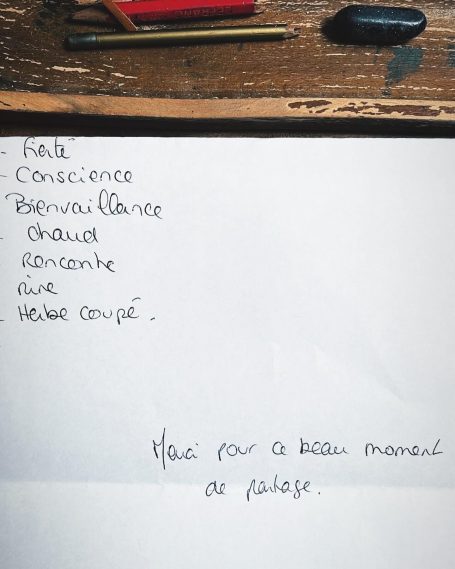 - Fierté
- Conscience
Bienvaillance
- Chaud
Rencontre
rire
- Herbe coupé.
Merci pour ce beau moment
de partage.